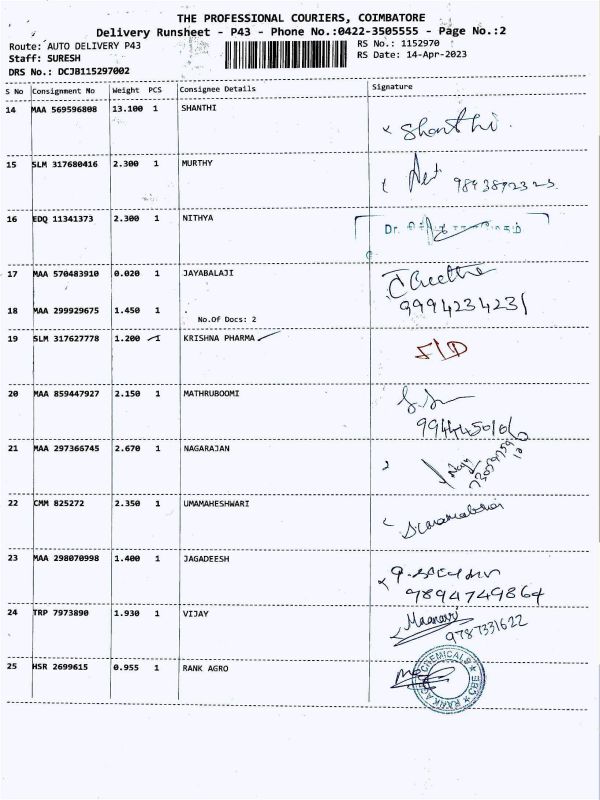 THE PROFESSIONAL COURIERS, COIMBATORE
Delivery Runsheet - P43 - Phone No.:0422-3505555 - Page No.:2
Route: AUTO DELIVERY P43 RS No.: 1152970
Staff: SURESH RS Date: 14-Apr-2023
DRS No.: DCJB115297002
S No Consignment No Weight PCS Consignee Details Signature
14 MAA 569596808 13.100 1 SHANTHI Shanthi
15 SLM 317680416 2.300 1 MURTHY
16 EDQ 11341373 2.300 1 NITHYA Dr.
17 MAA 570483910 0.020 1 JAYABALAJI
9994234231
18 MAA 299929675 1.450 1
No.Of Docs: 2
19 SLM 317627778 1.200 1 KRISHNA PHARMA
20 MAA 859447927 2.150 1 MATHRUBOOMI
9944450166
21 MAA 297366745 2.670 1 NAGARAJAN
22 CMM 825272 2.350 1 UMAMAHESHWARI
23 MAA 298070998 1.400 1 JAGADEESH
9894749864
24 TRP 7973890 1.930 1 VIJAY
9787331622
25 HSR 2699615 0.955 1 RANK AGRO
RANK AGRO CHEMICALS CBE